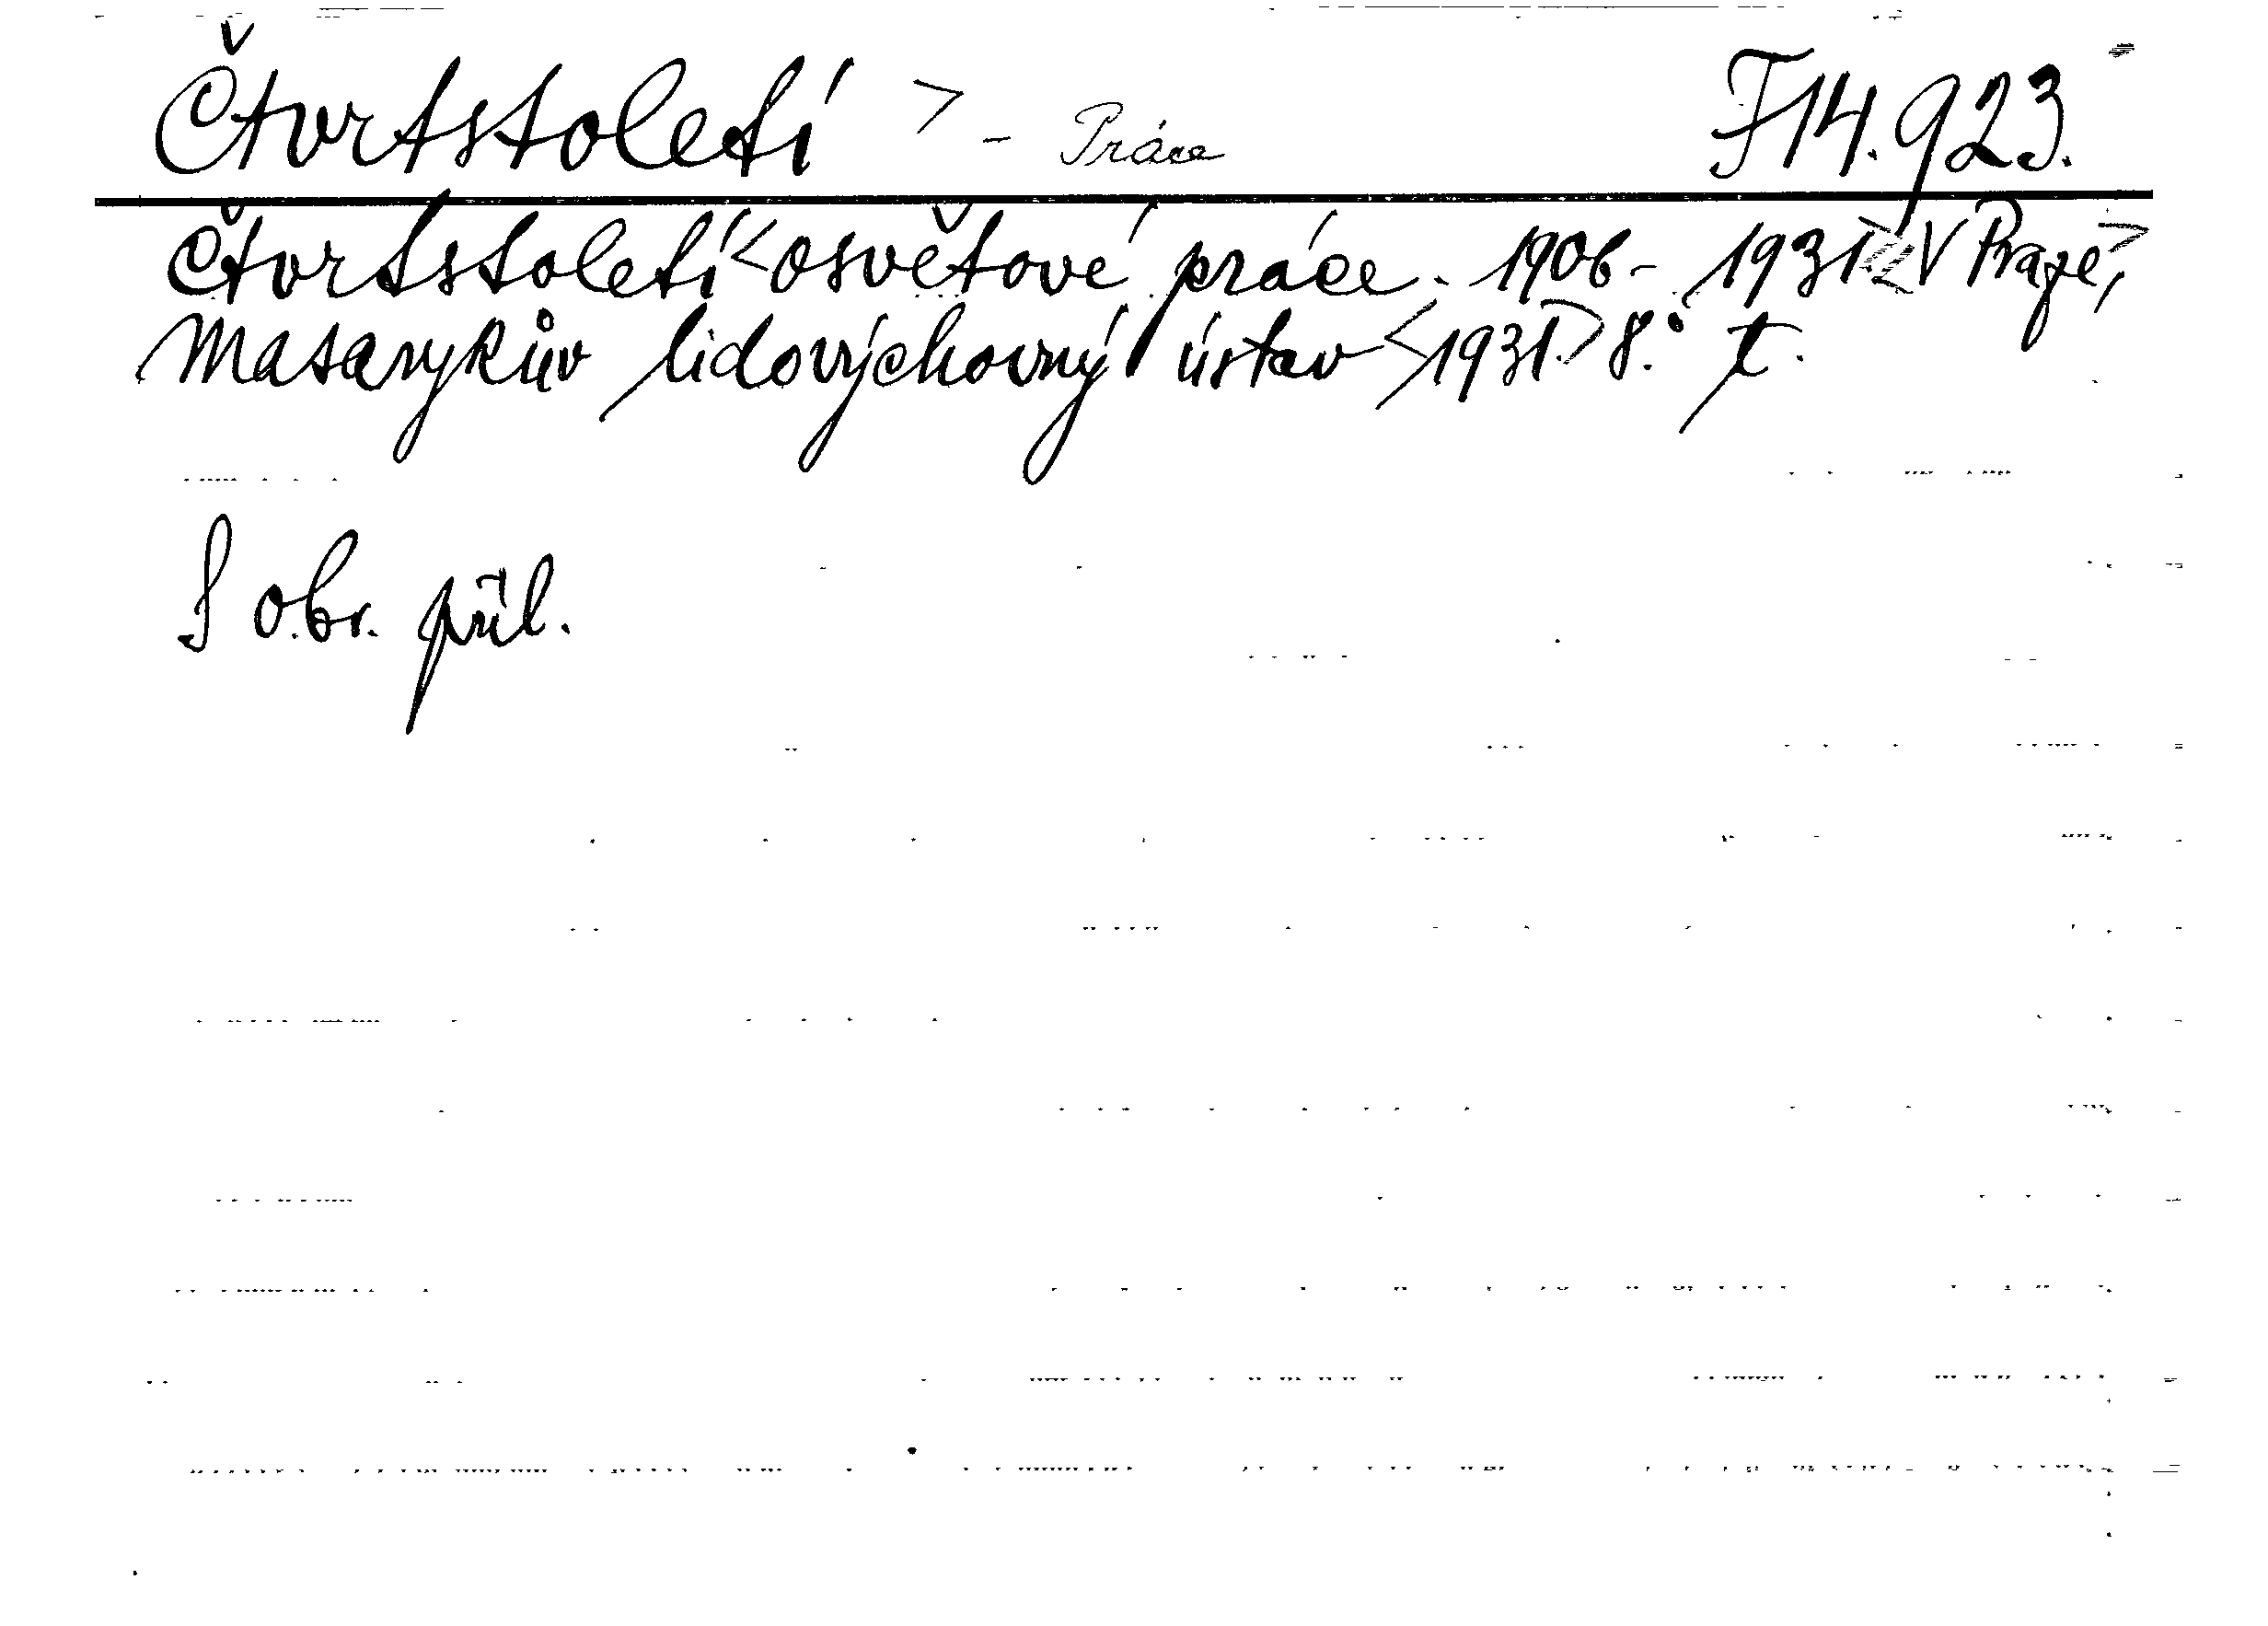 Čtvrtstoletí > - Práce F14.923.
Čtvrtstoletí < osvětové práce. 1906 - 1931 > < V Praze, >
Masarykův lidovýchovný ústav < 1931. > 8.° t.
S obr. příl.